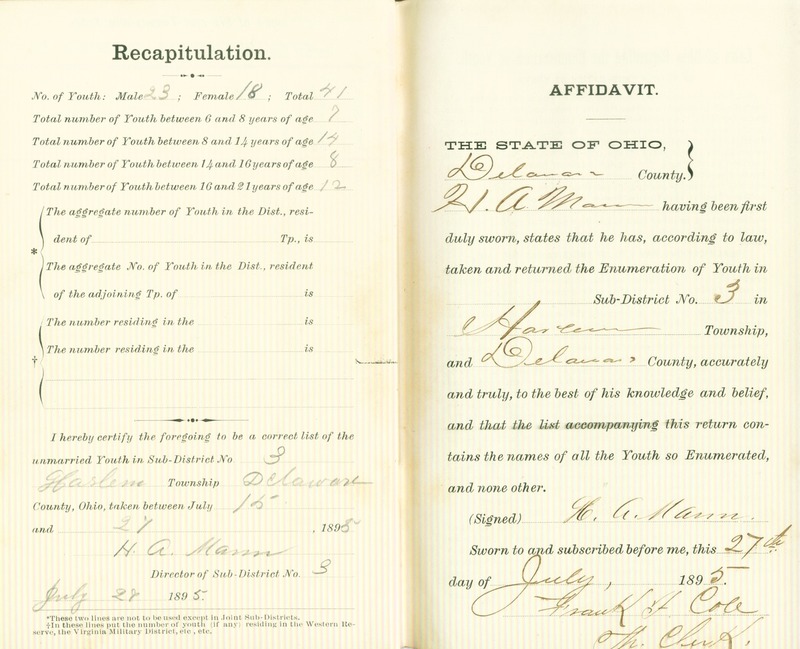 Recapitulation.
No. of Youth: Male 23; Female 18; Total 41
Total number of Youth between 6 and 8 years of age 7
Total number of Youth between 8 and 14 years of age 14
Total number of Youth between 14 and 16 years of age 8
Total number of Youth between 16 and 21 years of age 12
* The aggregate number of Youth in the Dist., resi-
dent of Tp., is
The aggregate No. of Youth in the Dist., resident
of the adjoining Tp. of is
† The number residing in the is
The number residing in the is
I hereby certify the foregoing to be a correct list of the
unmarried Youth in Sub-District No 3
Harlem Township Delaware
County, Ohio, taken between July 15
and 27, 1895
H. A. Mann
Director of Sub-District No. 3
July 28 1895.
*These two lines are not to be used except in Joint Sub-Districts.
†In these lines put the number of youth (if any) residing in the Western Re-
serve, the Virginia Military District, etc, etc.
AFFIDAVIT.
THE STATE OF OHIO,
Delaware County.
H. A. Mann having been first
duly sworn, states that he has, according to law,
taken and returned the Enumeration of Youth in
Sub-District No. 3 in
Harlem Township,
and Delaware County, accurately
and truly, to the best of his knowledge and belief,
and that the list accompanying this return con-
tains the names of all the Youth so Enumerated,
and none other.
(Signed) H. A. Mann.
Sworn to and subscribed before me, this 27th
day of July, 1895.
Frank F. Cole
Clerk.